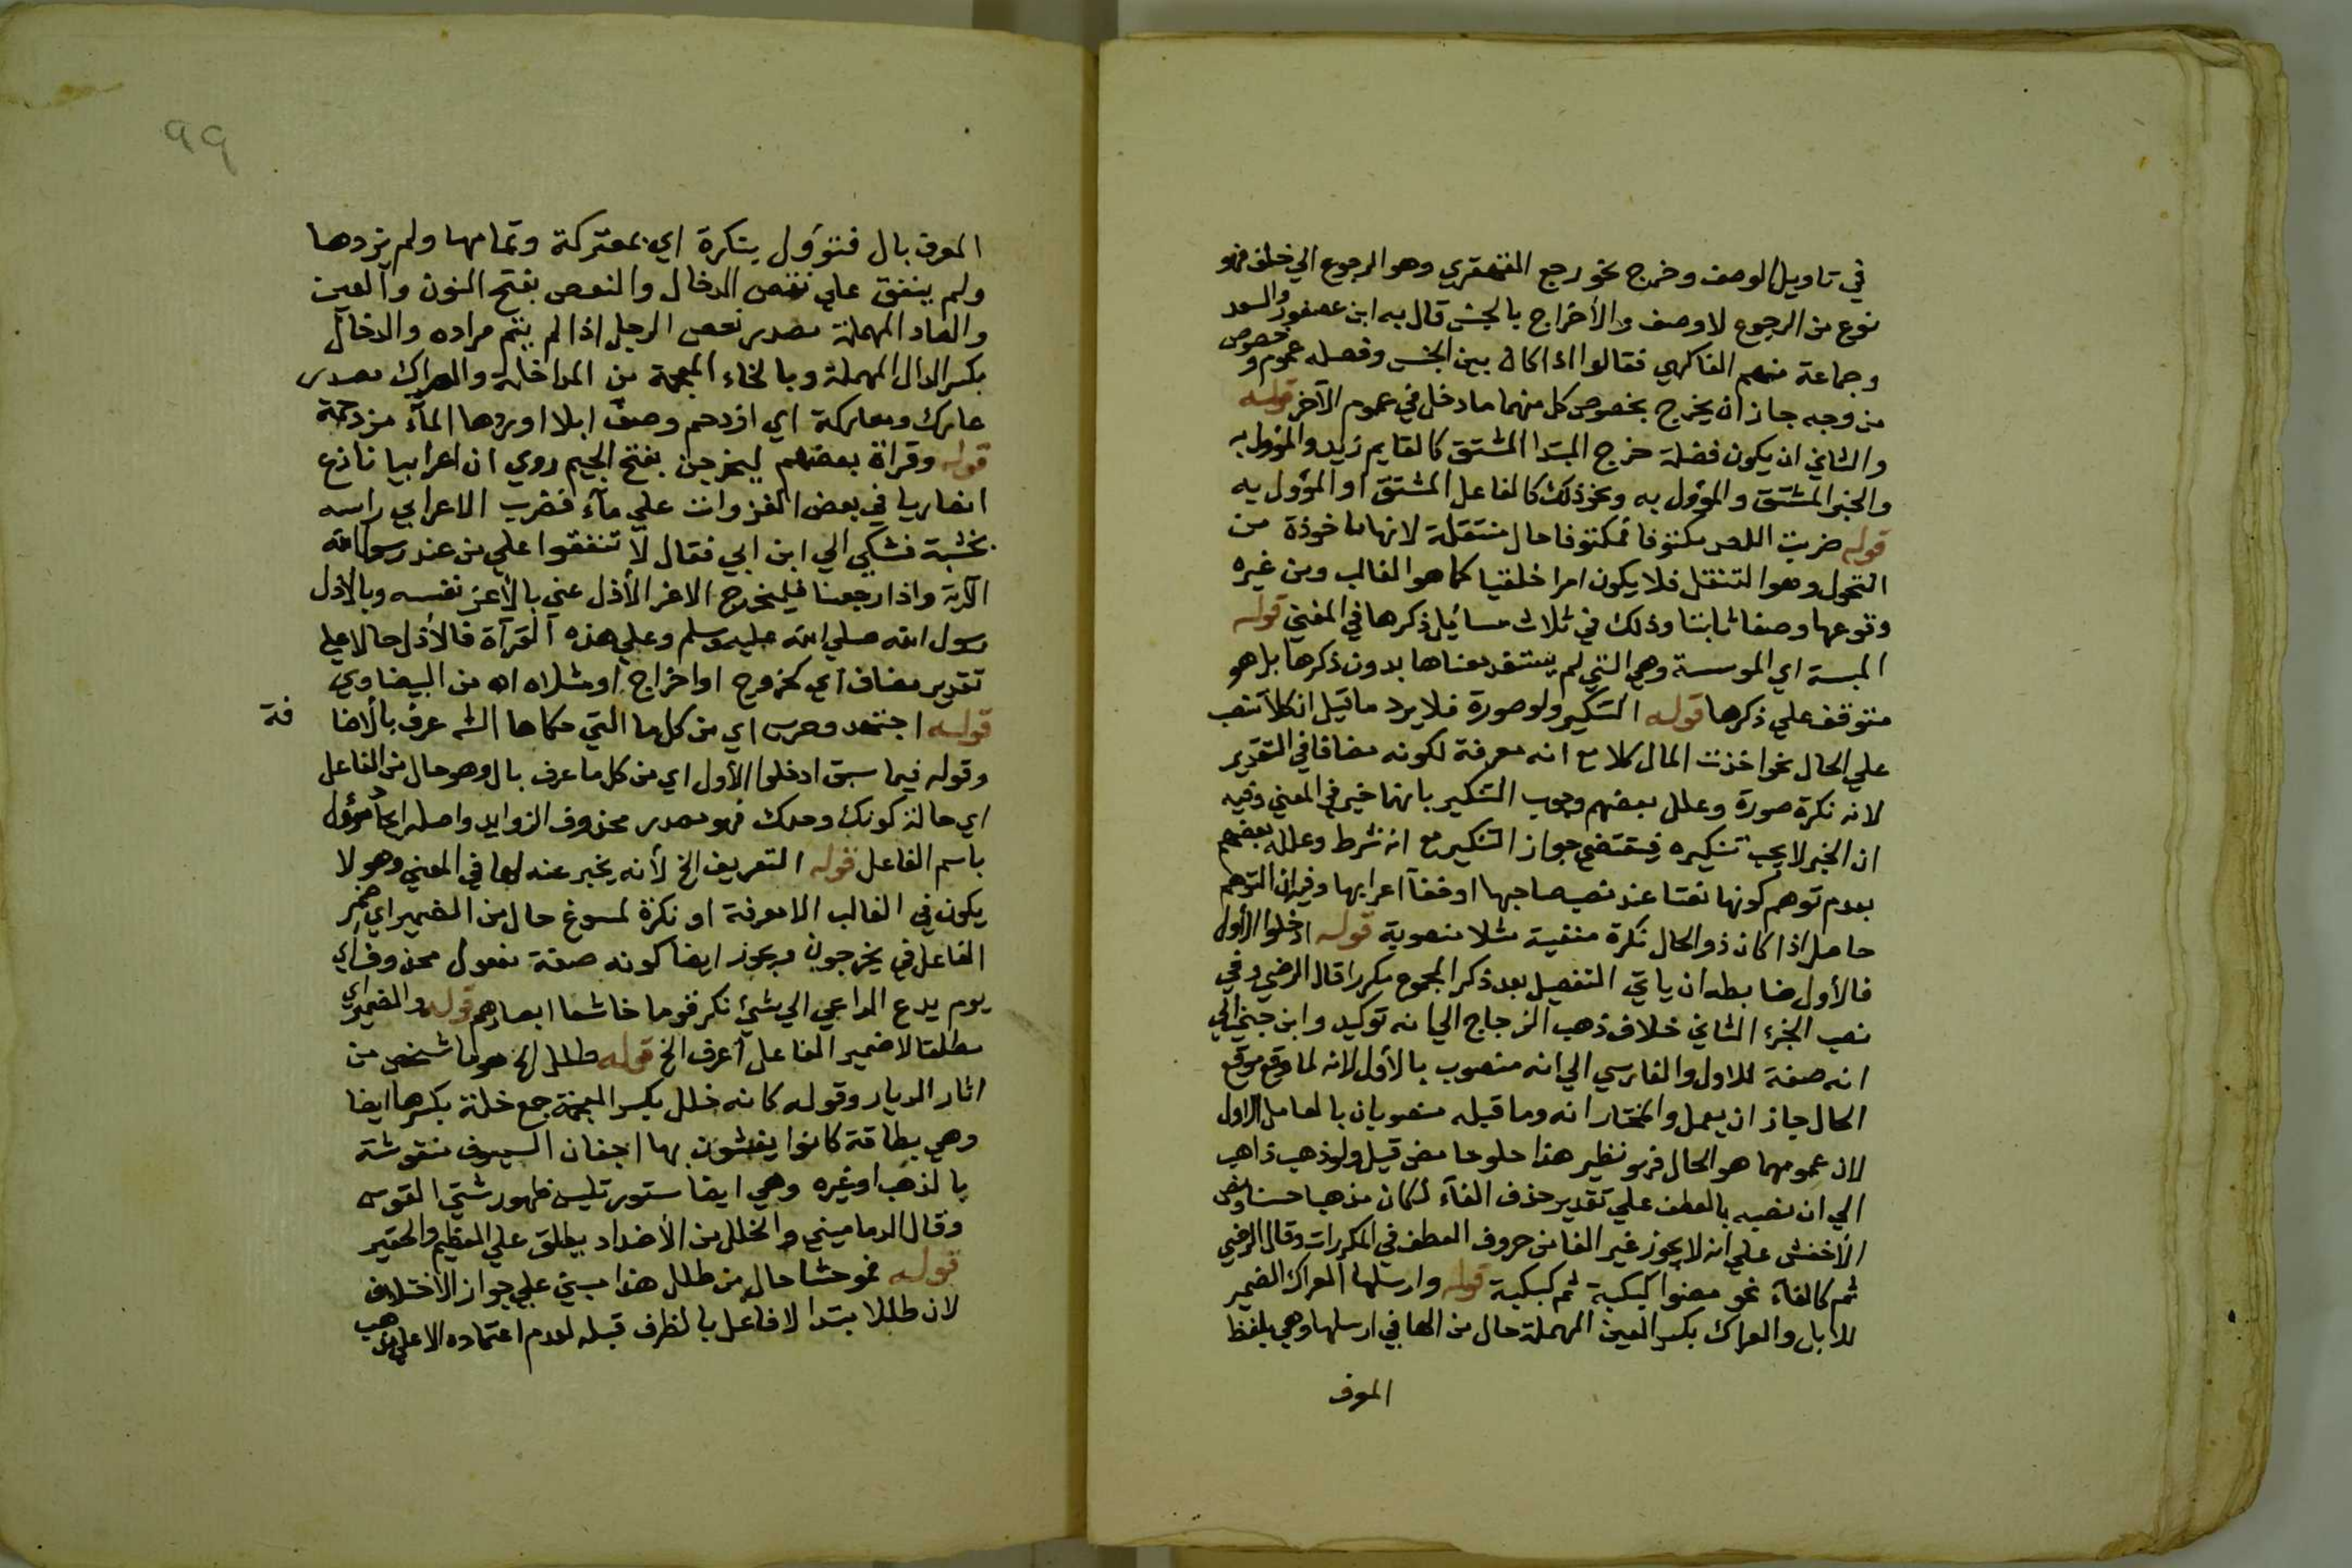 في تاويل الوصف وخرج نحو رجع القهقري وهو الرجوع الي خلف فهو
نوع من الرجوع لا وصف والأخراج بالجنس قال به ابن عصفور والسعد
وجماعة منهم الفاكهي فقالوا اذا كان بين الجنس وفصله عموم وخصوص
من وجه جاز ان يخرج بخصوص كل منهما ما دخل في عموم الآخر قوله
والثاني ان يكون فضلة خرج المبتدا المشتق كالقايم زيد والمؤول به
والخبر المشتق والمؤول به ونحو ذلك كالفاعل المشتق او المؤول به
قوله ضربت اللص مكتوفا فمكتوفا حال منتقلة لانها ماخوذة من
التحول وهو التنقل فلا يكون امرا خلقيا كما هو الغالب ومن غيره
وقوعها وصفا ثابتا وذلك في ثلاث مسائل ذكرها في المغني قوله
الموسسة وهي التي لم يستفد معناها بدون ذكرها بل هو
متوقف علي ذكرها قوله التنكير ولو صورة فلا يرد ما قيل ان كلا تنصب
علي الحال نحو اخذت المال كلا مع انه معرفة لكونه مضافا في التقدير
لانه نكرة صورة وعلل بعضهم وجوب التنكير بانها خبر في المعني وفيه
ان الخبر لا يجب تنكيره فيقتضي جواز التنكير مع انه شرط وعلله بعضهم
بعدم توهم كونها نعتا عند نصب صاحبها او خفآ اعرابها وفيه ان التوهم
حاصل اذا كان ذو الحال نكرة منفية مثلا منصوبة قوله ادخلوا الأول
فالأول ضابطه ان ياتي التفصيل بعد ذكر المجموع مكررا قال الرضي وفي
نصب الجزء الثاني خلاف ذهب الزجاج الي انه توكيد وابن جني الي
انه صفة للاول والفارسي الي انه منصوب بالأول لانه لما وقع موقع
الحال جاز ان يعمل والمختار انه وما قبله منصوبان بالعامل الاول
لان عمومهما هو الحال فهو نظير هذا حلو حامض قيل ولو ذهب ذاهب
الي ان نصبه بالعطف علي تقدير حذف الفآء لكان مذهبا حسنا ونص
الأخفش علي انه لا يجوز غير الفا من حروف العطف في المكررات وقال الرضي
ثم كالفآء نحو مضوا كبكبة ثم كبكبة قوله وارسلها العراك الضمير
للابل والعراك بكسر العين المهملة حال من الها في ارسلها وهي بلفظ
المعرف
٩٩
المعرف بال فتؤول بنكرة اي بمعتركة وتمامها ولم يزدها
ولم يشفق علي نغص الدخال والنغص بفتح النون والغين
والصاد المهملة مصدر نغص الرجل اذا لم يتم مراده والدخال
بكسر الدال المهملة وبالخاء المعجمة من المداخلة والعراك مصدر
عارك ومعاركة اي ازدحم وصف ابلا اوردها المآء مزدحمة
قوله وقراة بعضهم ليخرجن بفتح الجيم روي ان اعرابيا نازع
انصاريا في بعض الغزوات علي مآء فضرب الاعرابي راسه
بخشبة فشكي الي ابن ابي فقال لا تنفقوا علي من عند رسول الله
الآية واذا رجعنا فليخرج الاعز الأذل عني بالأعز نفسه وبالاذل
رسول الله صلي الله عليه وسلم وعلي هذه القرآة فالأذل حالا علي
تقدير مضاف اي كخروج او اخراج او مثل اه اه من البيضاوي
قوله اجتهد وحدك اي من كل ما التي حكاها الشـ عرف بالاضا فة
وقوله فيما سبق ادخلوا الأول اي من كل ما عرف بال وهو حال من الفاعل
اي حالة كونك وحدك فهو مصدر محذوف الزوايد واصله ايحاد مؤول
باسم الفاعل قوله التعريف الخ لأنه يخبر عنه بها في المعني وهو لا
يكون في الغالب الا معرفة او نكرة لمسوغ حال من الضمير اي ضمير
الفاعل في يخرجون ويجوز ايضا كونه صفة مفعول محذوف اي
يوم يدع الداعي الي شئ نكر قوما خاشعا ابصارهم قوله والضمير اي
مطلقا لا ضمير الفاعل أعرف الخ قوله طلل الخ هو ما شخص من
اثار الديار وقوله كانه خلل بكسر المعجمة جمع خلة بكسرها ايضا
وهي بطاقة كانوا يغشون بها اجفان السيوف منقوشة
بالذهب او غيره وهي ايضا ستور تلبس ظهور شتي القوس
وقال الدماميني والخلل من الأضداد يطلق علي العظيم والحقير
قوله فموحشا حال من طلل هذا مبني علي جواز الاختلاف
لان طللا مبتدا لا فاعل بالظرف قبله لعدم اعتماده الا علي مذهب